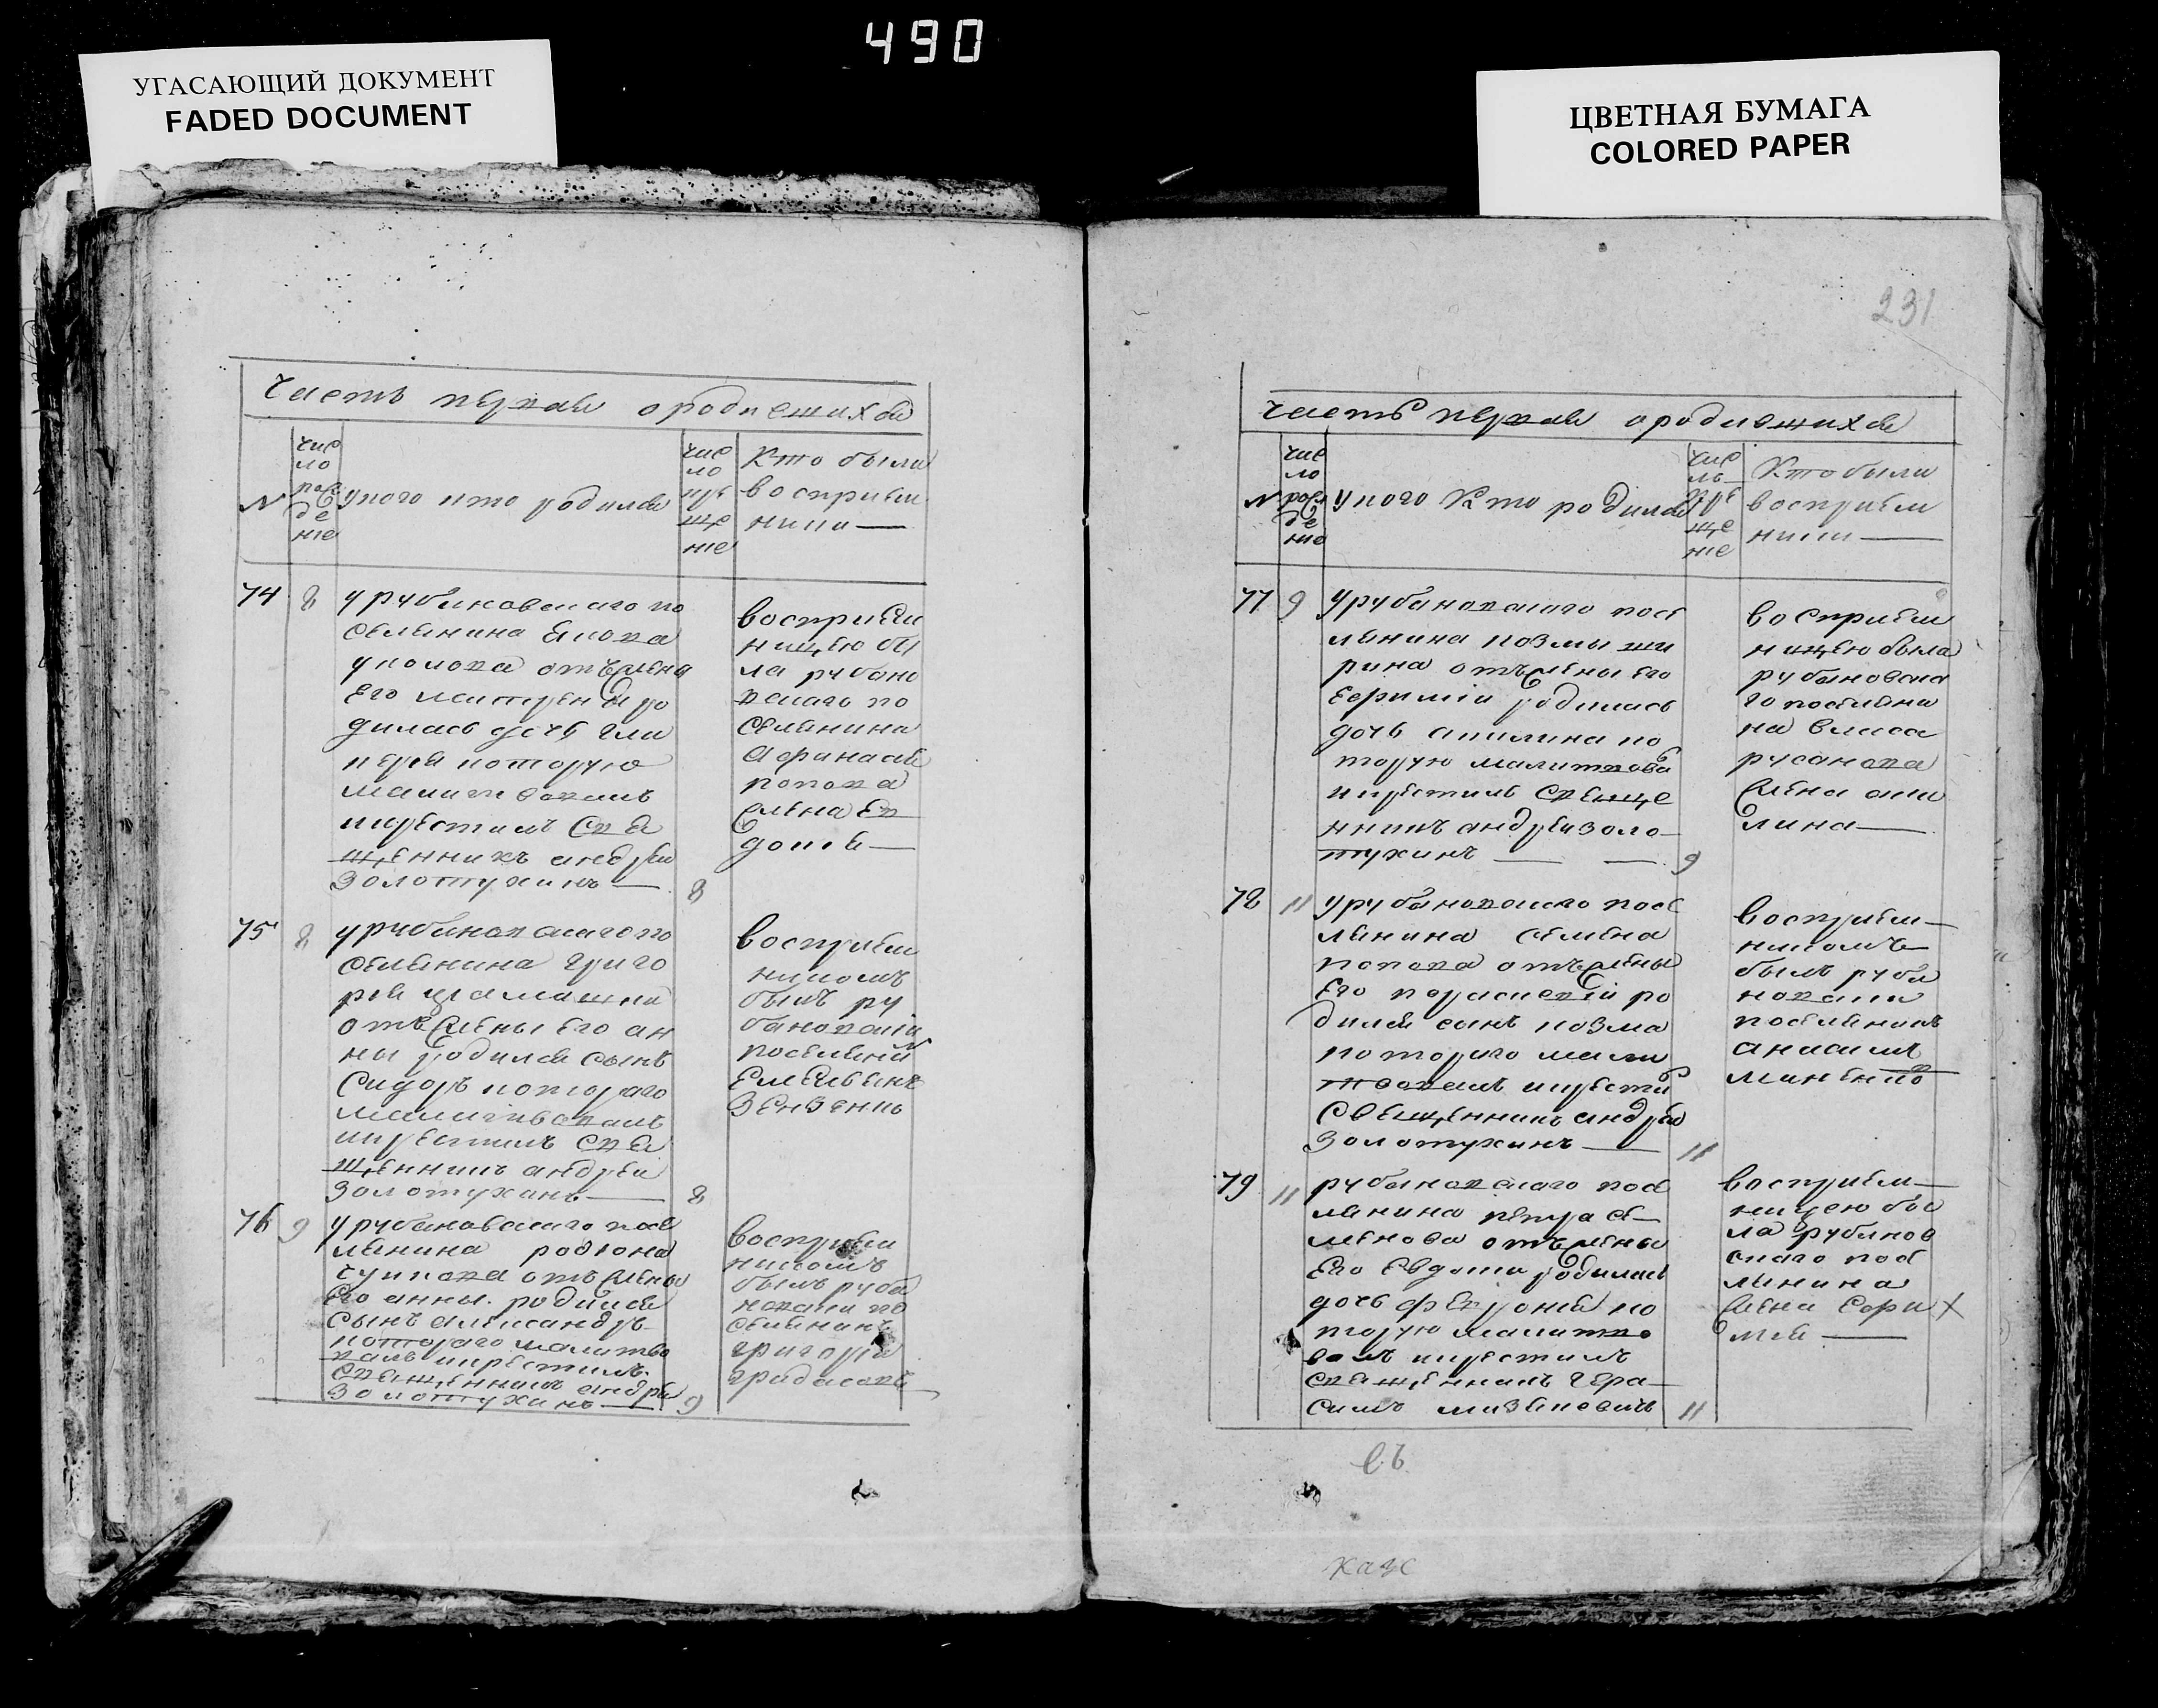 490
УГАСАЮЩИЙ ДОКУМЕНТ
FADED DOCUMENT
ЦВЕТНАЯ БУМАГА
COLORED PAPER
Часть первая о родившихся
N
чис
ло
рож
де
ние
у кого кто родился
чис
ло
кре
ще
ние
Кто были
восприем
ники —
74
8
у рубановскаго по
селянина Якова
отъ жены
его матрены ро
дилась дочь гли
керія которую
малитвовалъ
крестилъ свя
щенникъ андрей
Золотухинъ —
8
восприем
ницею бы
ла рубано
вскаго по
селянина
Афанасія
попова
жена Ев
докія —
75
8
у рубановскаго по
селянина григо
рія
отъ жены его ан
ны родился сынъ
Сидоръ котораго
малитвовалъ
крестилъ свя
щенникъ андрей
Золотухинъ —
8
восприем
никомъ
былъ ру
бановскій
поселянин
Емельянъ
Зензенко
76
9
у рубановскаго посе
лянина родіона
отъ жены
его анны родился
сынъ александръ
котораго малитво
валъ крестилъ
священникъ андрей
Золотухинъ —
9
восприем
никомъ
былъ руба
новски по
селянинъ
григорій
231
часть первая о родившихся
N
чис
ло
рож
де
ние
у кого Кто родился
чис
ль
кре
ще
ние
Кто были
восприем
ники —
77
9
у рубановскаго посе
лянина козмы ши
рина отъ жены его
Ефимии родилась
дочь акилина ко
торую малитвова
крестилъ священ
нникъ андрей золо
тухинъ — —
9
восприем
ницею была
рубановска
го поселяни
на власа
русанова
жена аки
лина —
78
11
у рубановскаго посе
лянина семена
попова отъ жены
его параскевіи ро
дился сынъ козма
котораго мали
твовалъ крести
священникъ андрей
Золотухинъ —
11
восприем —
никомъ
былъ руба
новски
поселянинъ
анисимъ
79
11
рубановскаго посе
лянина петра се —
менова отъ жены
его Евдокии родилась
дочь феврония ко
торую малитво
валъ крестилъ
священникъ гера —
симъ
11
восприем —
ницею бы
ла рубанов
скаго посе
лянина
жена Ефи
мия —